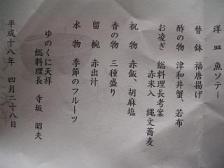 洋皿 魚ソテー
替鉢 福唐揚げ
酢の物 津和井蟹、若布
お凌ぎ 総料理長考案
赤米入 縄文蕎麦
祝物 赤飯、胡麻塩
香の物 三種盛り
留椀 赤出汁
水物 季節のフルーツ
ゆのくに天祥
総料理長 寺坂 昭夫
平成十八年 四月二十八日